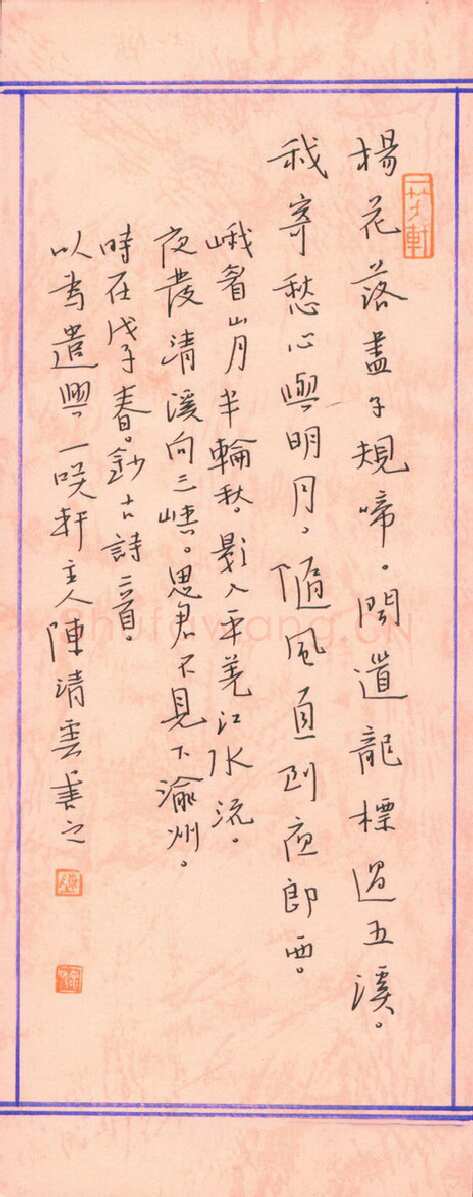 楊花落盡子規啼。聞道龍標過五溪。
我寄愁心與明月，隨風直到夜郎西。
峨眉山月半輪秋，影入平羌江水流。
夜發清溪向三峽。思君不見下渝州。
時在戊子春。鈔古詩二首。
以書遣興 一笑軒主人陳清雲書之